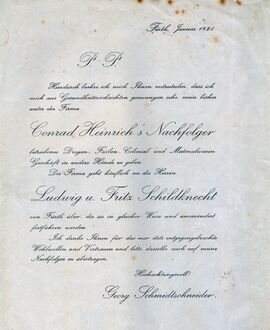 Fürth, Januar 1920
P. P.
Hierdurch beehre ich mich Ihnen mitzuteilen, dass ich
mich aus Gesundheitsrücksichten gezwungen sehe, mein bisher
unter der Firma
Conrad Heinrich's Nachfolger
betriebenes Drogen-, Farben, Colonial und Materialwaren-
Geschäft in andere Hände zu geben.
Die Firma geht käuflich an die Herren
Ludwig u. Fritz Schildknecht
von Fürth über, die es in gleicher Weise und unverändert
fortführen werden.
Ich danke Ihnen für das mir stets entgegengebrachte
Wohlwollen und Vertrauen und bitte dasselbe auch auf meine
Nachfolger zu übertragen.
Hochachtungsvoll:
Georg Schmidtschneider.